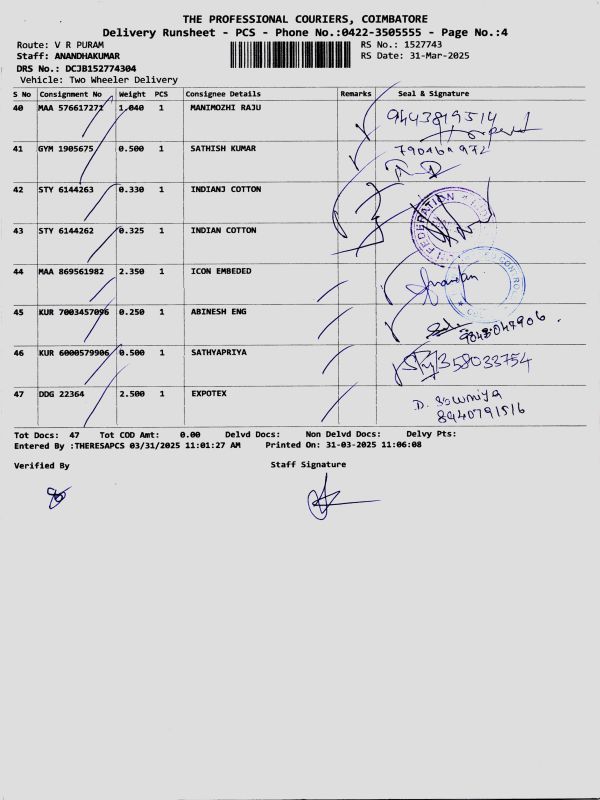 THE PROFESSIONAL COURIERS, COIMBATORE
Delivery Runsheet - PCS - Phone No.:0422-3505555 - Page No.:4
Route: V R PURAM
RS No.: 1527743
Staff: ANANDHAKUMAR
RS Date: 31-Mar-2025
DRS No.: DCJB152774304
Vehicle: Two Wheeler Delivery
S No Consignment No Weight PCS Consignee Details Remarks Seal & Signature
40 MAA 576617271 1.040 1 MANIMOZHI RAJU 9443819514
41 GYM 1905675 0.500 1 SATHISH KUMAR
42 STY 6144263 0.330 1 INDIANJ COTTON
43 STY 6144262 0.325 1 INDIAN COTTON
44 MAA 869561982 2.350 1 ICON EMBEDED
45 KUR 7003457096 0.250 1 ABINESH ENG 9843047906
46 KUR 6000579906 0.500 1 SATHYAPRIYA 358033754
47 DDG 22364 2.500 1 EXPOTEX D. Sowmiya
8940791516
Tot Docs: 47 Tot COD Amt: 0.00 Delvd Docs: Non Delvd Docs: Delvy Pts:
Entered By :THERESAPCS 03/31/2025 11:01:27 AM Printed On: 31-03-2025 11:06:08
Verified By Staff Signature